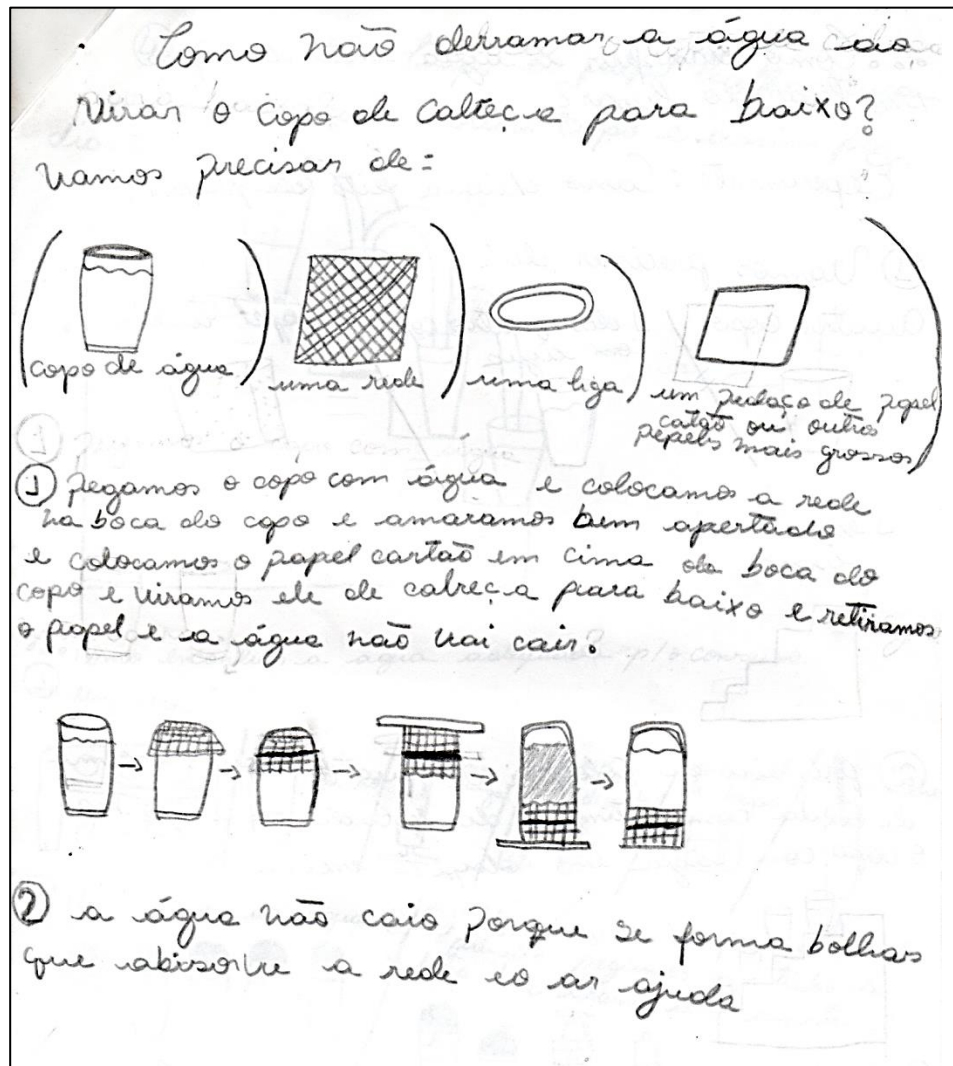 Como não derramar a água ao
virar o copo de cabeça para baixo?
vamos precisar de:
copo de água
uma rede
uma liga
um pedaço de papel
catão ou outros
pepeis mais grossos
① pegamos o copo com água e colocamos a rede
na boca do copo e amaramos bem apertado
e colocamos o papel cartão em cima da boca do
copo e viramos ele de cabeça para baixo e retiramos
o papel e a água não vai cair?
② a água não caio porque se forma bolhas
que abisorve a rede eo ar ajuda